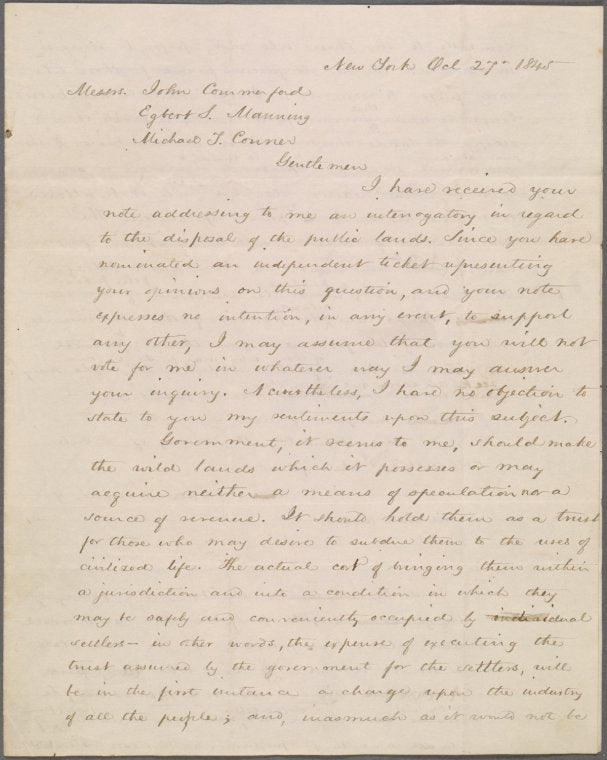 New York Oct 27th 1845
Messrs. John Commerford
Egbert S. Manning
Michael T. Conner
Gentlemen
I have received your
note addressing to me an interrogatory in regard
to the disposal of the public lands. Since you have
nominated an independent ticket representing
your opinions on this question, and your note
expresses no intention, in any event, to support
any other, I may assume that you will not
vote for me in whatever way I may answer
your inquiry. Nevertheless, I have no objection to
state to you my sentiments upon this subject.
Government, it seems to me, should make
the wild lands which it possesses or may
acquire neither a means of speculation nor a
source of revenue. It should hold them as a trust
for those who may desire to subdue them to the uses of
civilized life. The actual cost of bringing them within
a jurisdiction and into a condition in which they
may be safely and conveniently occupied by individual
settlers – in other words, the expense of executing the
trust assumed by the government for the settlers, will
be in the first instance a charge upon the industry
of all the people; and, inasmuch as it would not be